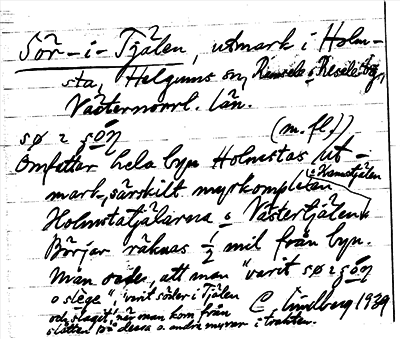 Sör-i-Tjälen, utmark i Holm-
sta, Helgums sn, Ramsele o Resele sn,
Västernorrl. län.
(m. fl.)
Omfattar hela byn Holmstas ut-
mark, särskilt myrkomplexen
Holmstatjälarna o Västertjälen
o Kamstjälen
Börjar räknas ½ mil från byn.
Man sade, att man "varit
o slåge" "varit söder i Tjälen
och slagit, när man kom från
slåttern på dessa o. andra myrar i trakten.
C Lindberg 1939